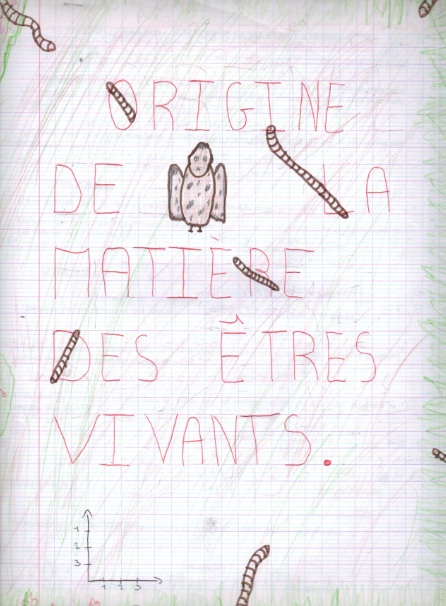 ORIGINE
DE LA
MATIÈRE
DES ÊTRES
VIVANTS.
1
2
3
1 2 3